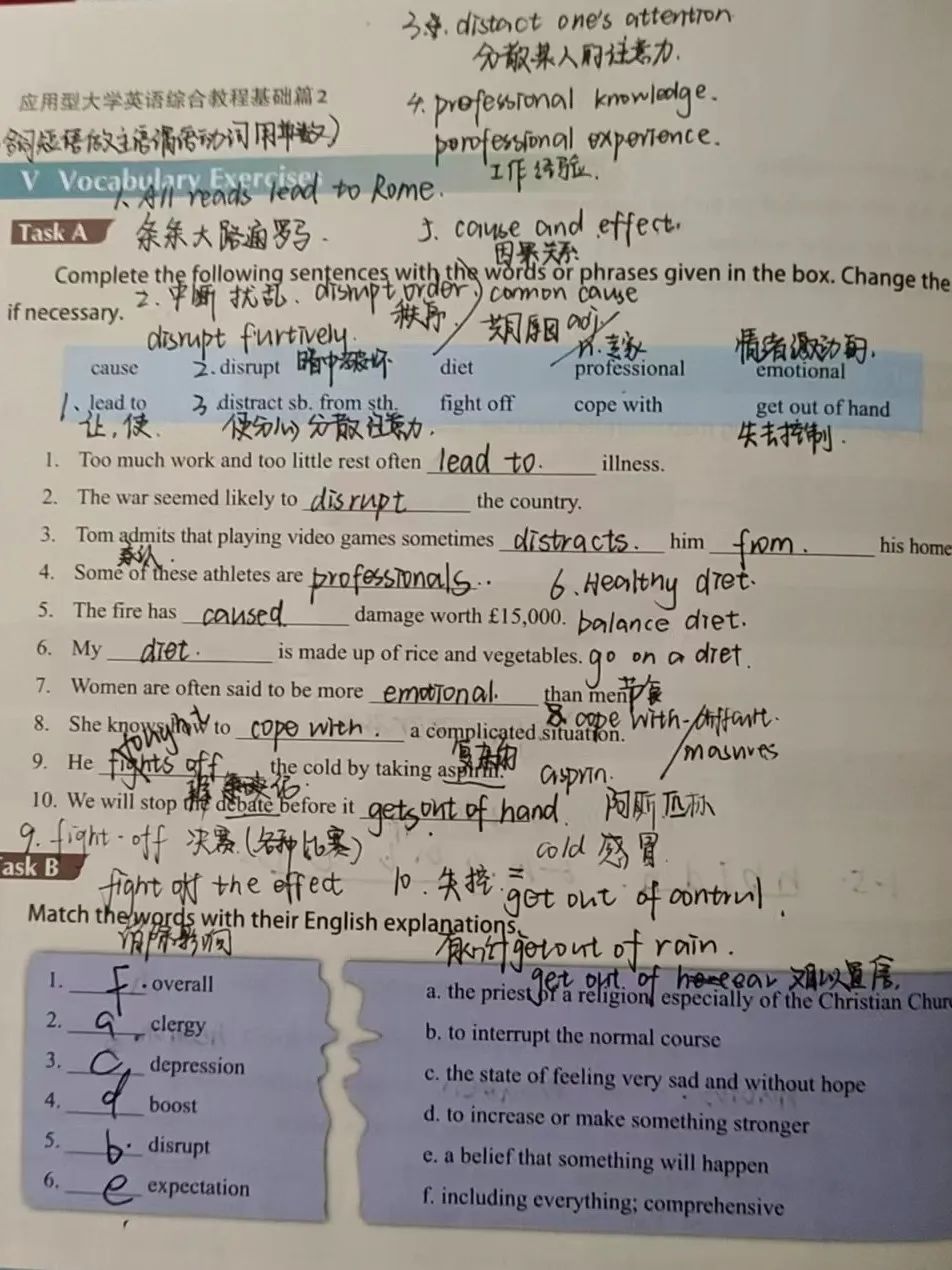 3. distact one's attention
分散某人的注意力.
应用型大学英语综合教程基础篇2
4. professional knowledge.
短语做主语谓语动词用单数)
porofessional experience.
工作经验.
V Vocabulary Exercises
1. All reads lead to Rome.
Task A
条条大路通罗马.
5. cause and effect.
因果关系
Complete the following sentences with the words or phrases given in the box. Change the
if necessary.
2. 中断 扰乱. disrupt order
秩序.
common cause
共同原因
disrupt furtively.
暗中破坏
adj
n. 专家
情绪激动的.
cause 2. disrupt diet professional emotional
1、lead to 3 distract sb. from sth. fight off cope with get out of hand
让,使. 使分心 分散注意力. 失去控制.
1. Too much work and too little rest often lead to. illness.
2. The war seemed likely to disrupt the country.
3. Tom admits that playing video games sometimes distracts. him from. his home
承认.
4. Some of these athletes are professionals..
6. Healthy diet.
5. The fire has caused damage worth £15,000.
balance diet.
6. My diet. is made up of rice and vegetables.
go on a diet.
节食
7. Women are often said to be more emotional. than men
8. cope with-diffcult.
masures
8. She knows how to cope with. a complicated situation.
复杂的
9. He fights off the cold by taking aspirin.
asprin.
阿斯匹林
10. We will stop the debate before it gets out of hand.
9. fight-off 决赛.(各种比赛)
cold 感冒.
Task B
fight off the effect
消除影响
10. 失控 = get out of control.
Match the words with their English explanations.
get out of rain.
get out of 难以置信.
1. f. overall
2. a. clergy
3. c, depression
4. d boost
5. b. disrupt
6. e expectation
a. the priest of a religion, especially of the Christian Chur
b. to interrupt the normal course
c. the state of feeling very sad and without hope
d. to increase or make something stronger
e. a belief that something will happen
f. including everything; comprehensive